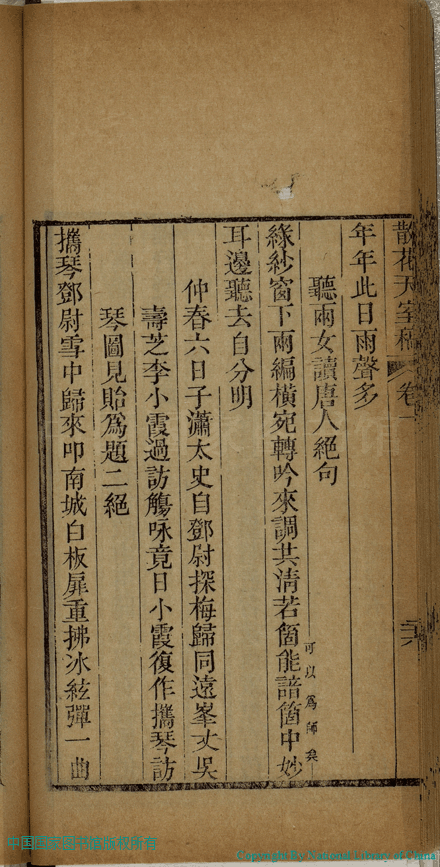 散花天室稿 卷一 二六
年年此日雨聲多
聽兩女讀唐人絕句
綠紗窗下兩編橫宛轉吟來調共清若箇能諳箇中妙
可以為師矣
耳邊聽去自分明
仲春六日子瀟太史自鄧尉探梅歸同遠峯丈吳
壽芝李小霞過訪觴咏竟日小霞復作攜琴訪
琴圖見貽爲題二絕
攜琴鄧尉雪中歸來叩南城白板扉重拂冰絃彈一曲
中国国家图书馆版权所有
Copyright By National Library of China